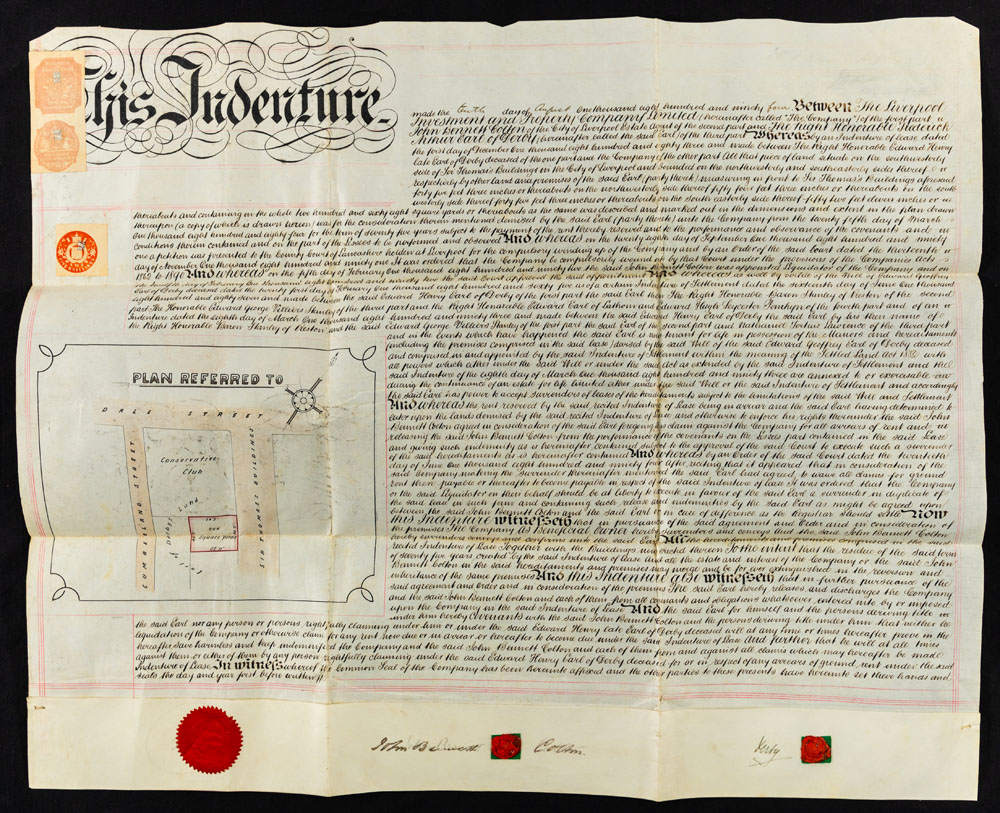 This Indenture
made the tenth day of August One thousand eight hundred and ninety four Between The Liverpool
Investment and Property Company Limited (hereinafter called "The Company") of the first part
John Bennett Colton of the City of Liverpool Estate Agent of the second part and The Right Honorable Frederick
Arthur Earl of Derby (hereinafter called the said Earl) of the third part Whereas by an Indenture of Lease dated
the first day of December One thousand eight hundred and eighty three and made between The Right Honorable Edward Henry
late Earl of Derby deceased of the one part and the Company of the other part All that piece of land situate on the southwesterly
side of Sir Thomas's Buildings in the City of Liverpool and bounded on the northwesterly and southeasterly sides thereof
respectively by other land and premises of the said Earl (party thereto) measuring in front to Sir Thomas's Buildings aforesaid
forty five feet three inches or thereabouts on the northwesterly side thereof fifty four feet three inches or thereabouts on the south
westerly side thereof forty five feet three inches or thereabouts on the south easterly side thereof fifty two feet eleven inches or
thereabouts and containing in the whole two hundred and sixty eight square yards or thereabouts as the same was described and marked out in the dimensions and extent in the plan drawn
thereupon (a copy of which is drawn hereon) was for the consideration therein mentioned demised by the said Earl (party thereto) unto the Company from the twenty fifth day of March
One thousand eight hundred and eighty four for the term of seventy five years subject to the payment of the rent thereby reserved and to the performance and observance of the covenants and
conditions therein contained and on the part of the Lessees to be performed and observed And whereas on the twenty eighth day of September One thousand eight hundred and ninety
one a petition was presented to the County Court of Lancashire holden at Liverpool for the compulsory winding up of the Company and by an Order of the said Court dated the thirteenth
day of November One thousand eight hundred and ninety one it was ordered that the Company be compulsorily wound up by that Court under the provisions of the Companies Acts
1862 to 1890 And whereas on the fifth day of February One thousand eight hundred and ninety two the said John Bennett Colton was appointed Liquidator of the Company and on
Earl of Derby deceased dated the twenty first day of February One thousand eight hundred and sixty five as of a certain Indenture of Settlement dated the sixteenth day of June One thousand
eight hundred and eighty seven and made between the said Edward Henry Earl of Derby of the first part the said Earl then The Right Honorable Baron Stanley of Preston of the second
part The Honorable Edward George Villiers Stanley of the third part and the Right Honorable Edward Earl of Lathom and Edward Hugh Leycester Penrhyn of the fourth part and of an
Indenture dated the eighth day of March One thousand eight hundred and ninety three and made between the said Edward Henry Earl of Derby the said Earl by his then name of
the Right Honorable Baron Stanley of Preston and the said Edward George Villiers Stanley of the first part the said Earl of the second part and Nathaniel Tertius Lawrence of the third part
and in the events which have happened the said Earl is now tenant for life in possession of the Manors and hereditaments
(including the premises comprised in the said Lease) devised by the said Will of the said Edward Geoffrey Earl of Derby deceased
and comprised in and appointed by the said Indenture of Settlement within the meaning of the Settled Land Act 1882 with
all powers which either under the said Will or under the said Act as extended by the said Indenture of Settlement and the
said Indenture of the eighth day of March One thousand eight hundred and ninety three are annexed to or exerciseable
during the continuance of an estate for life limited either under the said Will or the said Indenture of Settlement and accordingly
the said Earl has power to accept Surrenders of Leases of the hereditaments subject to the limitations of the said Will and Settlement
And whereas the rent reserved by the said recited Indenture of Lease being in arrear and the said Earl having determined to
enter upon the lands demised by the said recited Indenture of Lease and otherwise to enforce his rights thereunder the said John
Bennett Colton agreed in consideration of the said Earl foregoing all claim against the Company for all arrears of rent and
releasing the said John Bennett Colton from the performance of the covenants on the Lessees part contained in the said Lease
and giving such indemnity as is hereinafter contained subject to the approval of the Court to execute such a surrender
of the said hereditaments as is hereinafter contained And whereas by an Order of the said Court dated the twentieth
day of June One thousand eight hundred and ninety four after reciting that it appeared that in consideration of the
said Company making the Surrender thereinafter mentioned the said Earl had agreed to waive all claims for ground
rent then payable or thereafter to become payable in respect of the said Indenture of Lease It was ordered that the Company
or the said Liquidator on their behalf should be at liberty to execute in favour of the said Earl a surrender in duplicate of
the said Lease such lease and containing such release and indemnities by the said Earl as might be agreed upon
between the said John Bennett Colton and the said Earl or in case of difference as the Registrar should settle Now
this Indenture witnesseth that in pursuance of the said agreement and Order and in consideration of
the premises The Company As Beneficial Owner hereby surrenders and conveys and the said John Bennett Colton
hereby surrenders conveys and confirms unto the said Earl All the hereditaments and premises comprised in the said
recited Indenture of Lease Together with the Buildings now erected thereon To the intent that the residue of the said term
of seventy five years created by the said Indenture of Lease and all the estate and interest of the Company or the said John
Bennett Colton in the said hereditaments and premises may merge and be for ever extinguished in the reversion and
inheritance of the same premises And this Indenture also witnesseth that in further pursuance of the
said agreement and Order and in consideration of the premises The said Earl hereby releases and discharges the Company
and the said John Bennett Colton and each of them from all covenants and obligations whatsoever entered into by or imposed
upon the Company in the said Indenture of Lease And the said Earl for himself and the persons deriving title
under him hereby Covenants with the said John Bennett Colton and the persons deriving title under him that neither
the said Earl nor any person or persons rightfully claiming under him or under the said Edward Henry late Earl of Derby deceased will at any time or times thereafter prove in the
liquidation of the Company or otherwise claim for any rent now due or in arrear or hereafter to become due under the said Indenture of Lease And further that he will at all times
hereafter save harmless and keep indemnified the Company and the said John Bennett Colton and each of them from and against all claims which may hereafter be made
against them or either of them by any person rightfully claiming under the said Edward Henry Earl of Derby deceased for or in respect of any arrears of ground rent under the said
Indenture of Lease In witness whereof the Common Seal of the Company has been hereunto affixed and the other parties to these presents have hereunto set their hands and
seals the day and year first before written
PLAN REFERRED TO
DALE STREET
CUMBERLAND STREET
Conservative
Club
SIR THOMAS BUILDINGS
Earl of Derby's Land
268
Square yards
John Bennett Colton
Derby